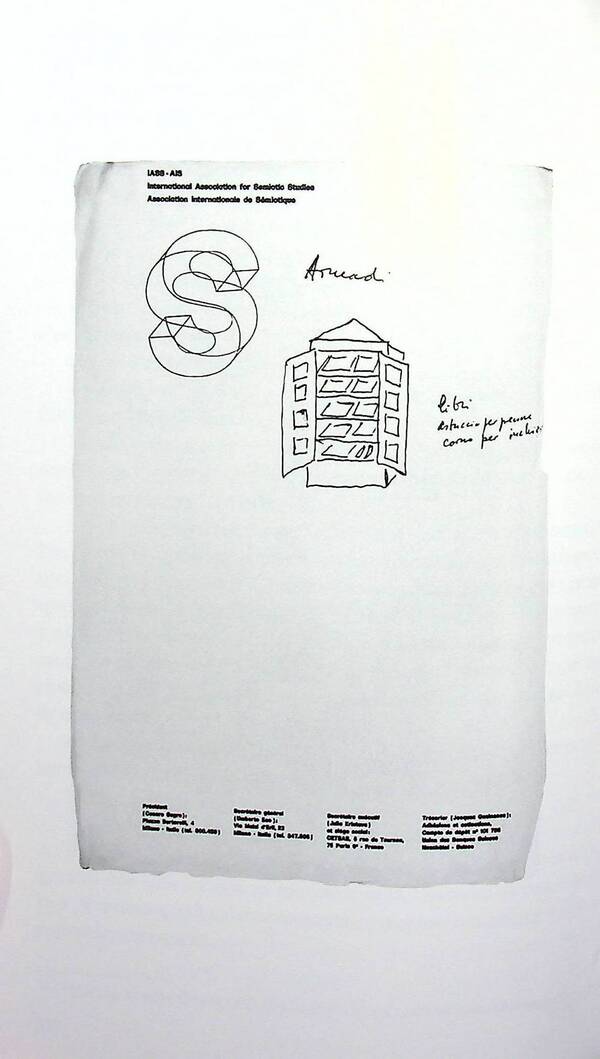 IASS-AIS
International Association for Semiotic Studies
Association Internationale de Sémiotique
S
Armadi
libri
astuccio per penne
corno per inchios
Président
(Cesare Segre):
Milano - Italie (tel.
Secrétaire général
(Umberto Eco):
Via Melzi d'Eril, 23
Milano - Italie (tel.
Secrétaire exécutif
(Julia Kristeva)
et siège social:
CETSAS, 6 rue de Tournon,
75 Paris 6e - France
Trésorier (Jacques Geninasca):
Adhésions et cotisations,
Compte de dépôt n° 101
Union des Banques Suisses
Neuchâtel - Suisse